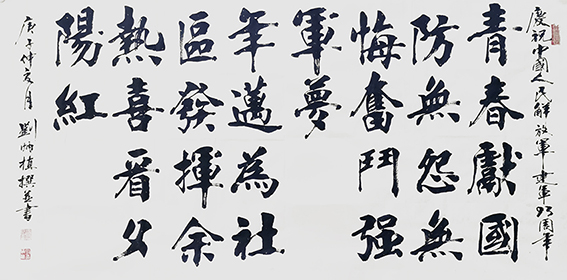 慶祝中國人民解放軍建軍93周年
青春獻國
防無怨無
悔奮鬥强
軍夢
年邁為社
區發揮余
熱喜看夕
陽紅
庚子仲夏月
劉炳楨撰並書